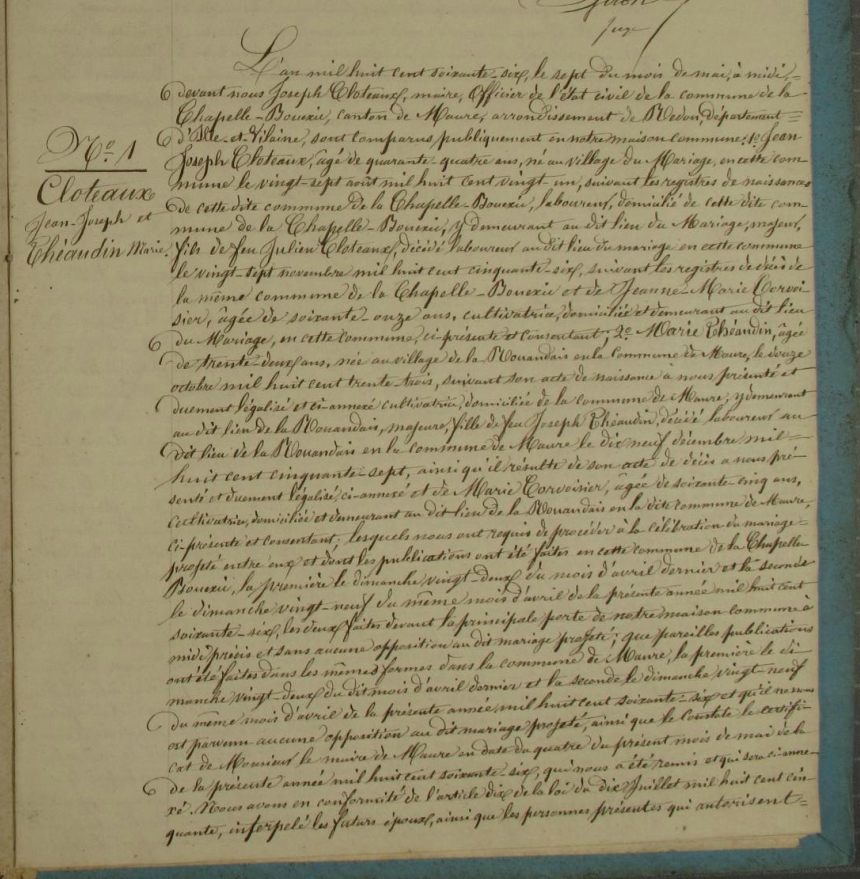 Juge
L'an mil huit cent soixante-six, le sept du mois de mai, à midi,=
devant nous Joseph Cloteaux, maire, Officier de l'état civil de la commune de la
Chapelle-Bouexic, canton de Maure, arrondissement de Redon, département=
d'Ille-et-Vilaine, sont comparus publiquement en notre maison commune, 1º Jean
Nº 1
Joseph Cloteaux, âgé de quarante-quatre ans, né au village du Mariage, en cette com
Cloteaux
mune le vingt-sept août mil huit cent vingt-un, suivant les registres de naissances
Jean-Joseph et
de cette dite commune de la Chapelle-Bouexic, laboureur, domicilié de cette dite com-
Théaudin Marie.
mune de la Chapelle-Bouexic, y demeurant au dit lieu du Mariage, majeur,
fils de feu Julien Cloteaux, décédé laboureur au dit lieu du mariage en cette commune
le vingt-sept novembre mil huit cent cinquante-six, suivant les registres de décès de
la même commune de la Chapelle-Bouexic et de Jeanne-Marie Corvoi-
sier, âgée de soixante-onze ans, cultivatrice, domiciliée et demeurant au dit lieu
du Mariage, en cette commune, ci-présente et consentant; 2º Marie Théaudin, âgée
de trente-deux ans, née au village de la Rouandais en la commune de Maure, le douze
octobre mil huit cent trente-trois, suivant son acte de naissance à nous présenté et
duement légalisé et ci-annexé cultivatrice, domiciliée de la commune de Maure, y demeurant
au dit lieu de la Rouandais, majeure, fille de feu Joseph Théaudin, décédé laboureur au
dit lieu de la Rouandais en la commune de Maure le dix neuf décembre mil=
huit cent cinquante-sept, ainsi qu'il résulte de son acte de décès a nous pré-
senté et duement légalisé, ci-annexé et de Marie Corvoisier, âgée de soixante-cinq ans,
cultivatrice, domiciliée et demeurant au dit lieu de la Rouandais en la dite commune de Maure,
ci-présente et consentant; lesquels nous ont requis de procéder à la célébration du mariage=
projeté entre eux et dont les publications ont été faites en cette commune de la Chapelle
Bouexic, la première le dimanche vingt-deux du mois d'avril dernier et la seconde
le dimanche vingt-neuf du même mois d'avril de la présente année mil huit cent
soixante-six, les deux faites devant la principale porte de notre maison commune à
midi précis et sans aucune opposition au dit mariage projeté; que pareilles publications
ont été faites dans les mêmes formes dans la commune de Maure, la première le di
manche vingt-deux du dit mois d'avril dernier et la seconde le dimanche vingt-neuf
du même mois d'avril de la présente année mil huit cent soixante-six et qu'il ne nous
est parvenu aucune opposition au dit mariage projeté, ainsi que le constate le certifi-
cat de Monsieur le maire de Maure en date du quatre du présent mois de mai de la
de la présente année mil huit cent soixante-six, qui nous a été remis et qui sera ci-anne-
xé. Nous avons en conformité de l'article dix de la loi du dix Juillet mil huit cent cin-
quante, interpelé les futurs époux, ainsi que les personnes présentes qui autorisent=